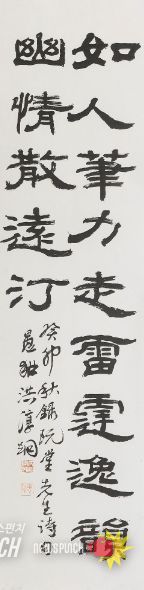 如人筆力走雷霆逸韻
幽情散遠汀
癸卯秋錄阮堂先生詩句
愚駐 洪淳綱
NEWSPUNCH